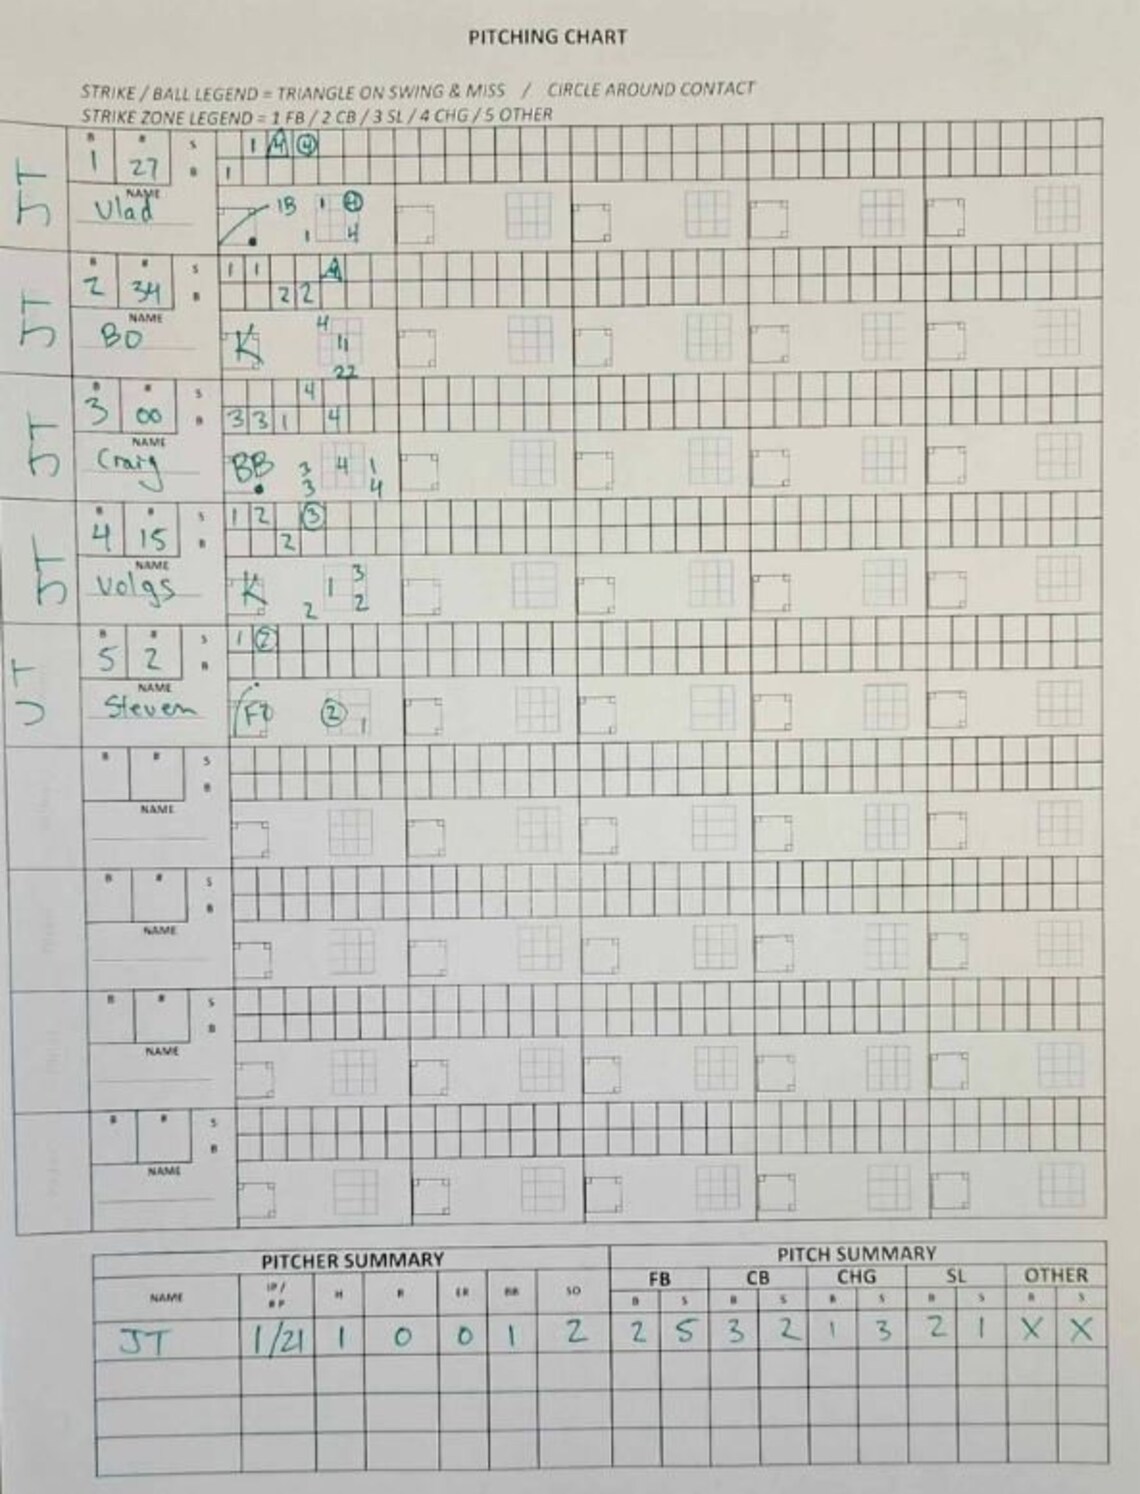 PITCHING CHART
STRIKE / BALL LEGEND = TRIANGLE ON SWING & MISS / CIRCLE AROUND CONTACT
STRIKE ZONE LEGEND = 1 FB / 2 CB / 3 SL / 4 CHG / 5 OTHER
JT
B # S 1 4 4
1 27 B 1
NAME
Vlad 1B 1 4
1 4
JT
B # S 1 1 4
2 34 B 2 2
NAME
BO K 4
11
22
JT
B # S 4
3 00 B 3 3 1 4
NAME
Craig BB 3 4 1
3 4
JT
B # S 1 2 3
4 15 B 2
NAME
Volgs K 1 3
2 2
JT
B # S 1 2
5 2 B
NAME
Steven 2 1
B # S
B
NAME
B # S
B
NAME
B # S
B
NAME
B # S
B
NAME
PITCHER SUMMARY PITCH SUMMARY
FB CB CHG SL OTHER
NAME IP / # P H R ER BB SO B S B S B S B S B S
JT 1/21 1 0 0 1 2 2 5 3 2 1 3 2 1 X X